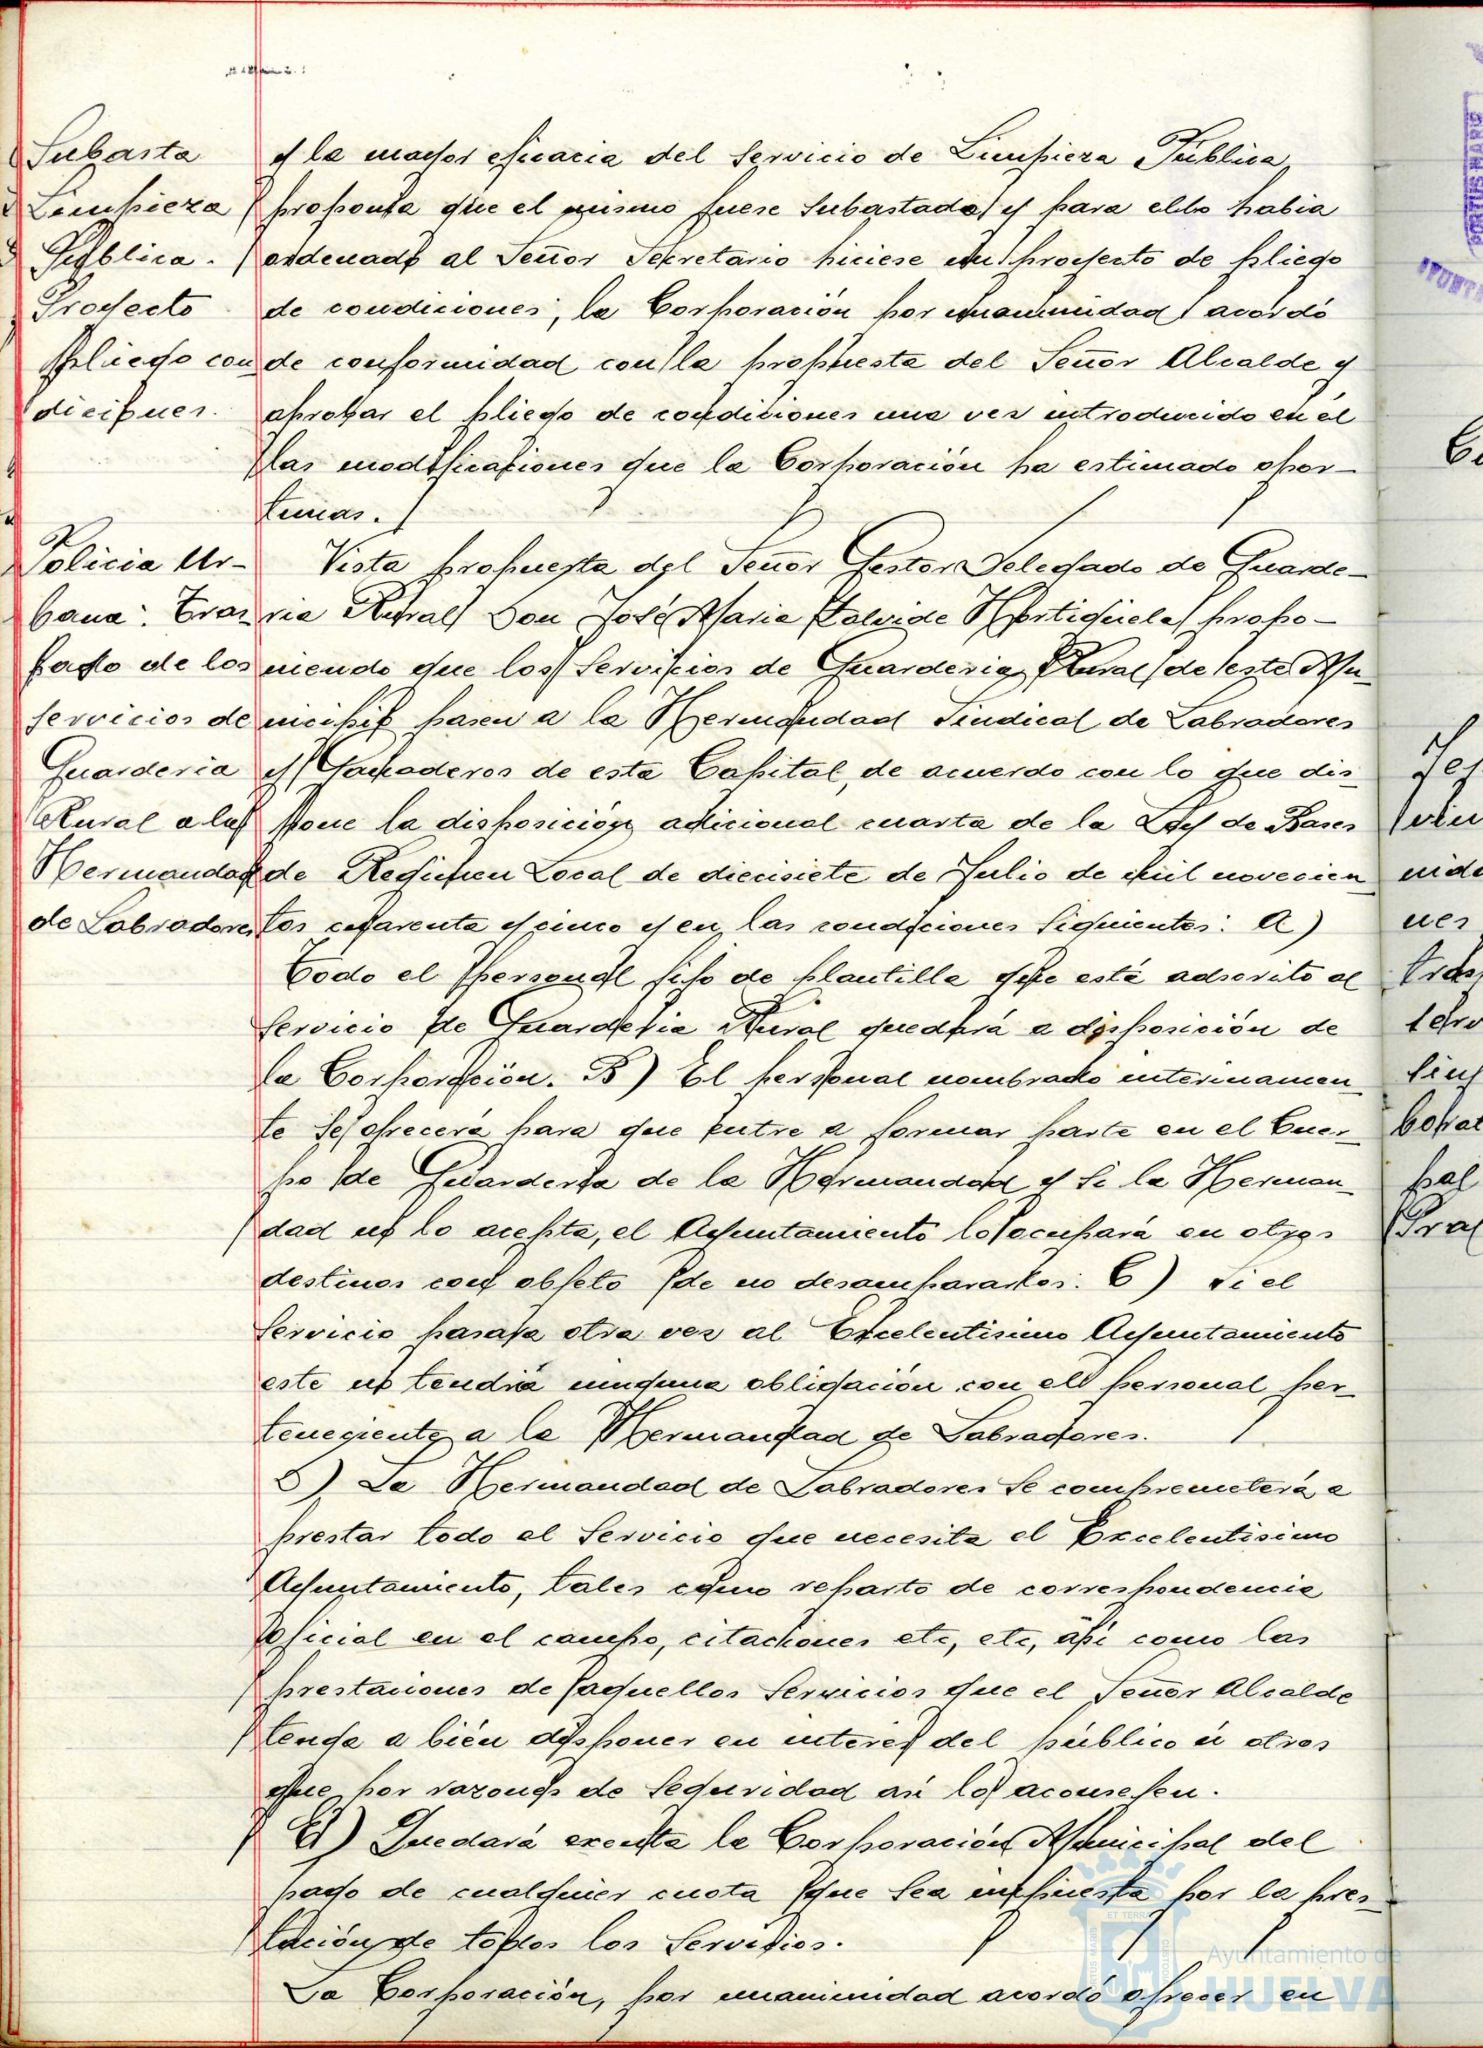 Subasta
Limpieza
Pública.
Proyecto
pliego con
diciones.
y la mayor eficacia del Servicio de Limpieza Pública,
proponía que el mismo fuese Subastado y para ello habia
ordenado al Señor Secretario hiciese un proyecto de pliego
de condiciones; la Corporación por unanimidad acordó
de conformidad con la propuesta del Señor Alcalde y
aprobar el pliego de condiciones una vez introducido en él
las modificaciones que la Corporación ha estimado opor-
tunas.
Policia Ur-
bana: Tras
paso de los
servicios de
Guarderia
Rural a la
Hermandad
de Labradores
Vista propuesta del Señor Gestor Delegado de Guarde-
ria Rural Don José Maria Hortigüela propo-
niendo que los Servicios de Guarderia Rural de este Mu-
nicipio pasen a la Hermandad Sindical de Labradores
y Ganaderos de esta Capital, de acuerdo con lo que dis-
pone la disposición adicional cuarta de la Ley de Bases
de Regimen Local de diecisiete de Julio de mil novecien
tos cuarenta y cinco y en las condiciones Siguientes: A)
Todo el personal fijo de plantilla que está adscrito al
Servicio de Guarderia Rural quedará a disposición de
la Corporación. B) El personal nombrado interinamen-
te se ofrecerá para que entre a formar parte en el Cuer-
po de Guarderia de la Hermandad y Si la Herman-
dad no lo acepta, el Ayuntamiento lo ocupará en otros
destinos con objeto de no desampararlos. C) Si el
Servicio pasara otra vez al Excelentisimo Ayuntamiento
este no tendrá ninguna obligación con el personal per-
teneciente a la Hermandad de Labradores.
D) La Hermandad de Labradores Se comprometerá a
prestar todo el Servicio que necesita el Excelentisimo
Ayuntamiento, tales como reparto de correspondencia
oficial en el campo, citaciones etc, etc, asi como las
prestaciones de aquellos Servicios que el Señor Alcalde
tenga a bién disponer en interes del público ú otros
que por razones de Seguridad asi lo aconsejen.
E) Quedará exenta la Corporación Municipal del
pago de cualquier cuota que Sea impuesta por la pres-
tación de todos los Servicios.
La Corporación, por unanimidad acordó ofrecer en
Ayuntamiento de
HUELVA